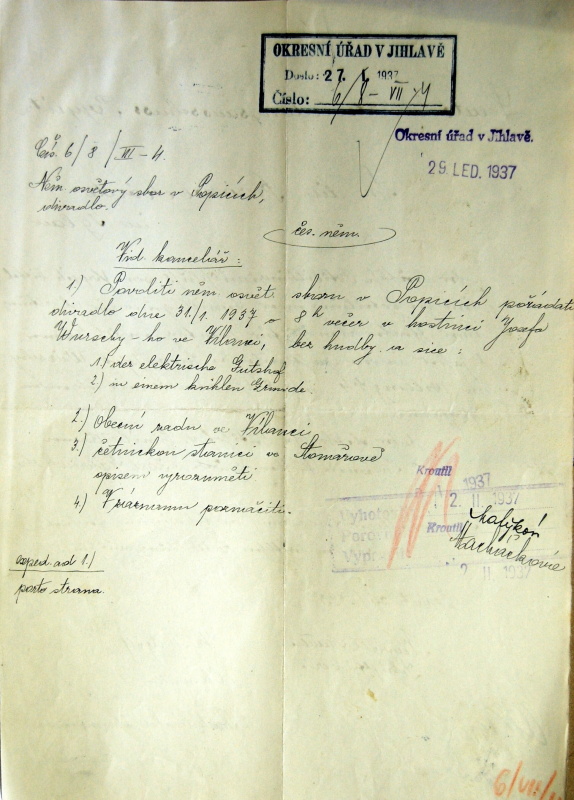 OKRESNÍ ÚŘAD V JIHLAVĚ
Došlo: 27. 1. 1937
Číslo: 6/8 - VII - 4
Okresní úřad v Jihlavě.
29. LED. 1937
Čís. 6/8/VII - 4.
Něm. osvětový sbor v Popicích,
divadlo.
čes. něm.
Vid. kancelář:
1.) Povoliti něm. osvět. sboru v Popicích pořádati
divadlo dne 31./1. 1937 o 8h večer v hostinci Josefa
Wurschy-ho ve Vílanci, bez hudby a sice:
1.) der elektrische Gutshof
2.) in einem kuhlen Grunde.
2.) Obecní radu ve Vílanci
3.) četnickou stanici ve Stonařově
opisem vyrozuměti
4.) V záznamu poznačiti.
Kroutil
1937
2. II. 1937
Vyhotov
Kroutil
Porov
Vypr
2. II. 1937
exped. ad 1./
porto strana.
6/VII/